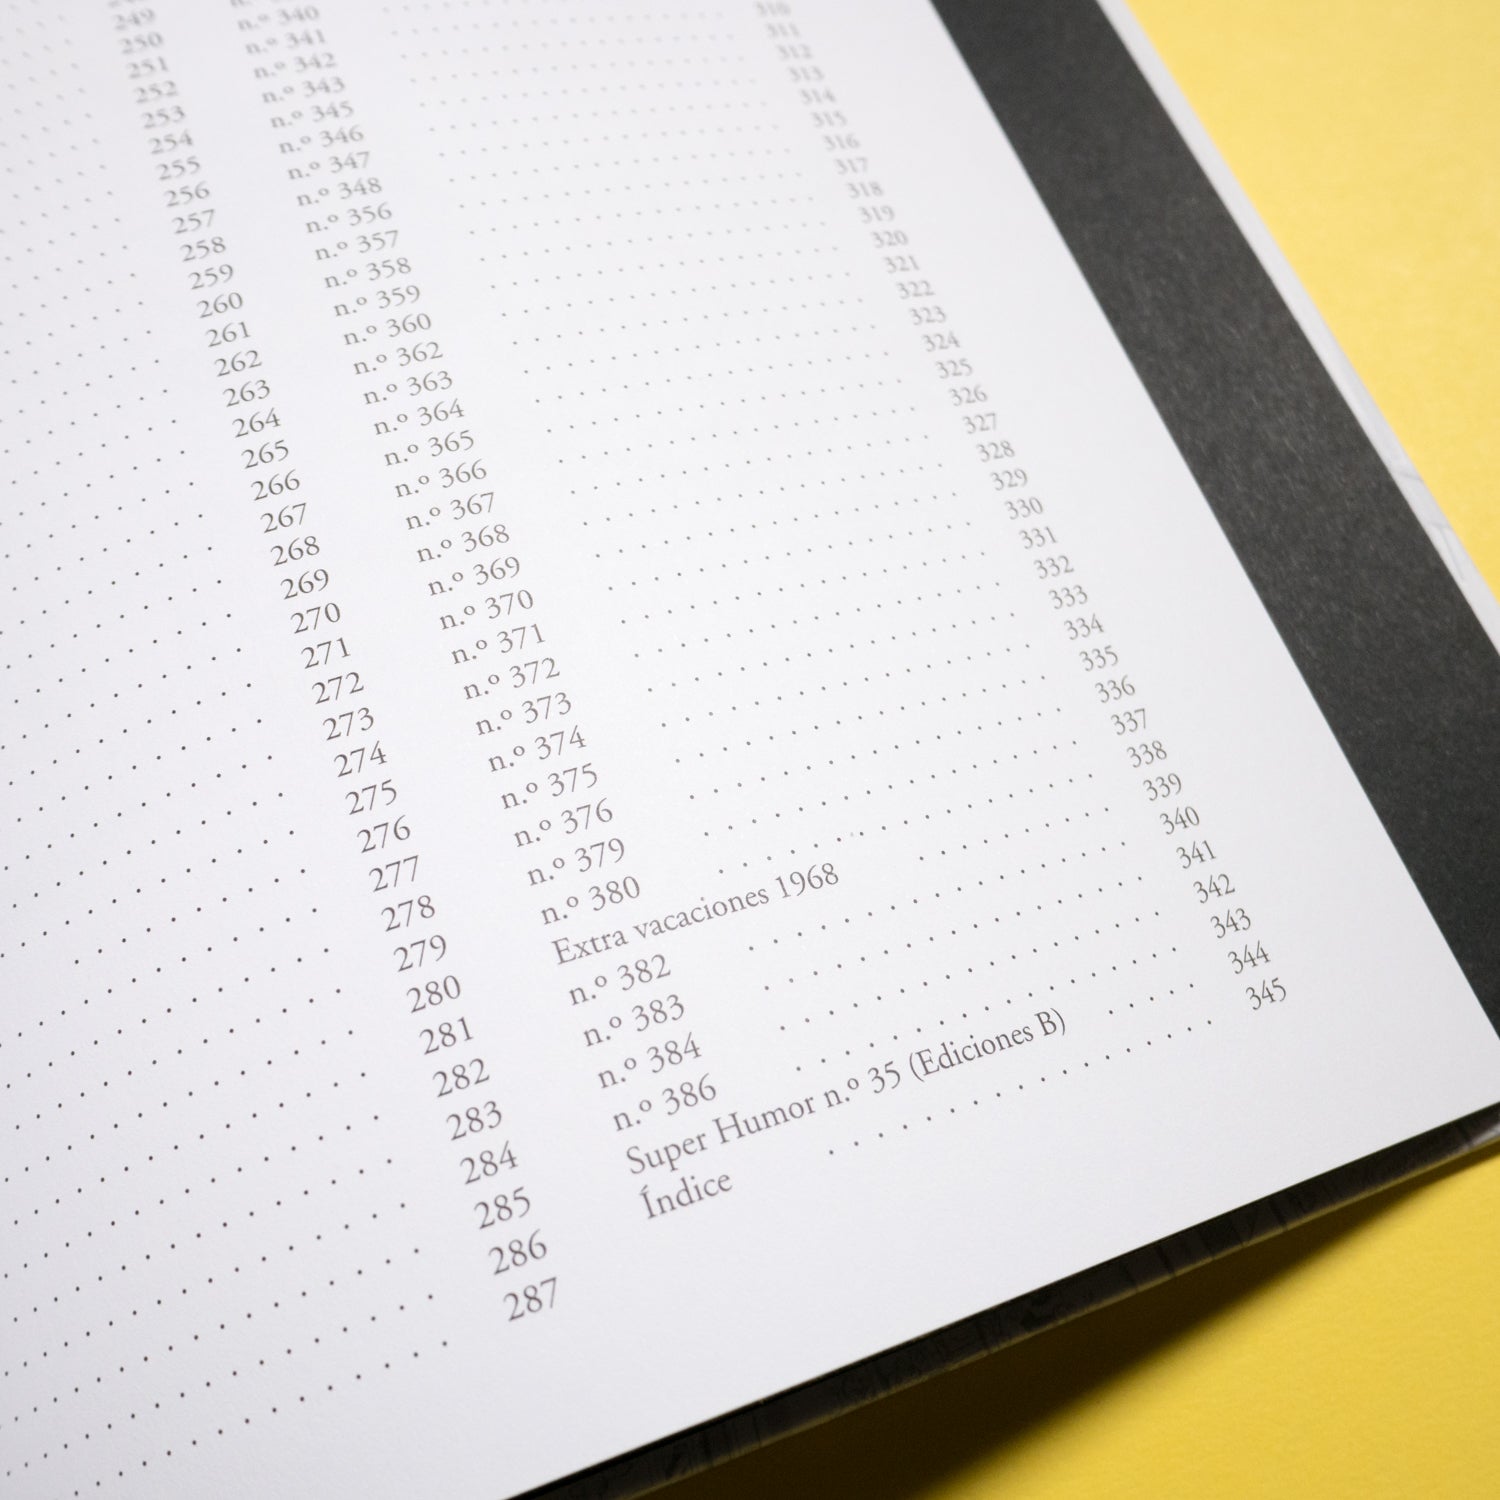 249
250
251
252
253
254
255
256
257
258
259
260
261
262
263
264
265
266
267
268
269
270
271
272
273
274
275
276
277
278
279
280
281
282
283
284
285
286
287
n.º 340
n.º 341 310
n.º 342 311
n.º 343 312
n.º 345 313
n.º 346 314
n.º 347 315
n.º 348 316
n.º 356 317
n.º 357 318
n.º 358 319
n.º 359 320
n.º 360 321
n.º 362 322
n.º 363 323
n.º 364 324
n.º 365 325
n.º 366 326
n.º 367 327
n.º 368 328
n.º 369 329
n.º 370 330
n.º 371 331
n.º 372 332
n.º 373 333
n.º 374 334
n.º 375 335
n.º 376 336
n.º 379 337
n.º 380 338
Extra vacaciones 1968 339
n.º 382 340
n.º 383 341
n.º 384 342
n.º 386 343
Super Humor n.º 35 (Ediciones B) 344
Índice 345